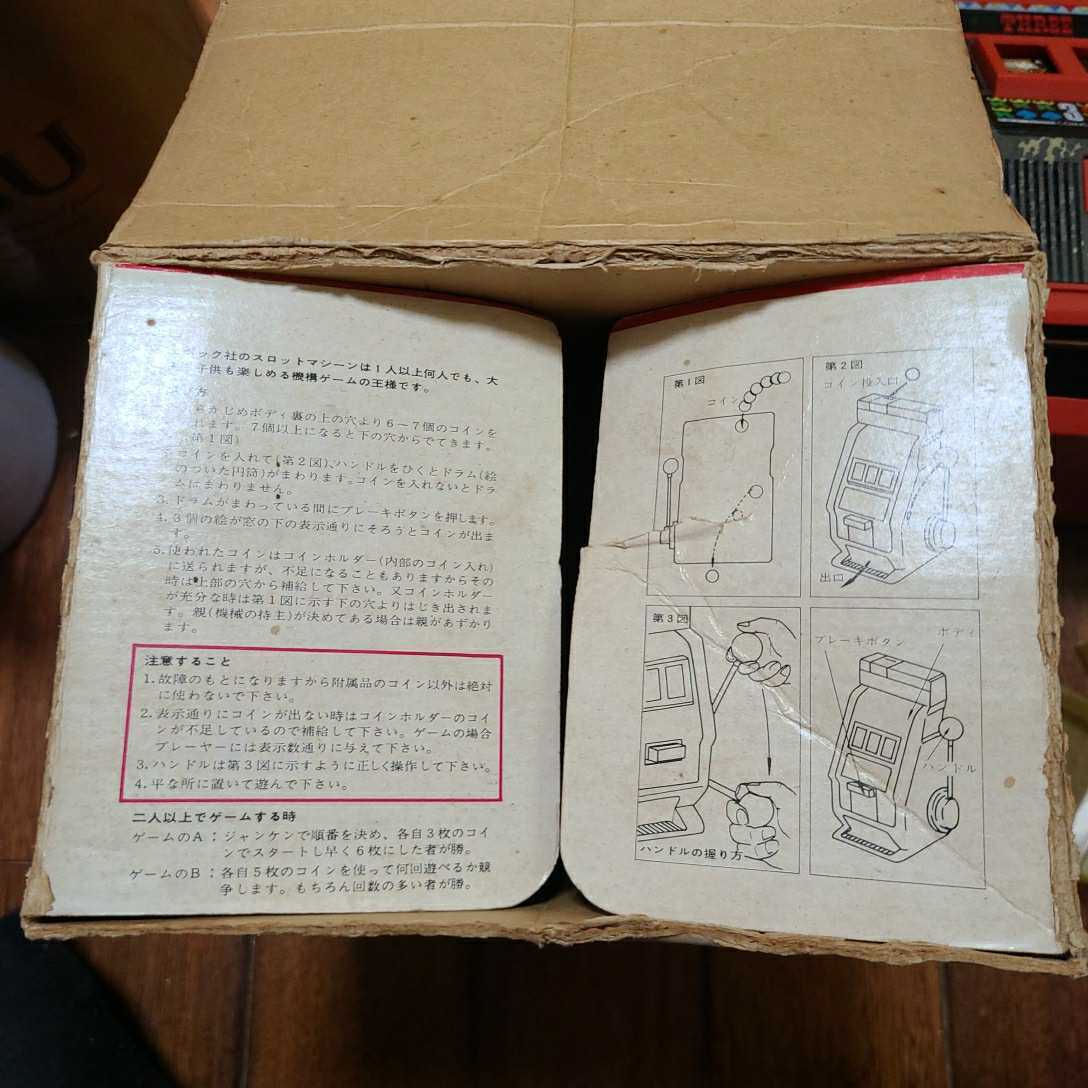 ック社のスロットマシーンは1人以上何人でも、大
子供も楽しめる機構ゲームの王様です。
方
らかじめボディ裏の上の穴より6〜7個のコインを
れます。7個以上になると下の穴からでてきます。
第1図)
コインを入れて(第2図)、ハンドルをひくとドラム(絵
のついた円筒)がまわります。コインを入れないとドラ
ムはまわりません。
3. ドラムがまわっている間にブレーキボタンを押します。
4. 3個の絵が窓の下の表示通りにそろうとコインが出ま
す。
5. 使われたコインはコインホルダー(内部のコイン入れ)
に送られますが、不足になることもありますからその
時は上部の穴から補給して下さい。又コインホルダー
が充分な時は第1図に示す下の穴よりはじき出されま
す。親(機械の持主)が決めてある場合は親があずかり
ます。
注意すること
1. 故障のもとになりますから附属品のコイン以外は絶対
に使わないで下さい。
2. 表示通りにコインが出ない時はコインホルダーのコイ
ンが不足しているので補給して下さい。ゲームの場合
プレーヤーには表示数通りに与えて下さい。
3. ハンドルは第3図に示すように正しく操作して下さい。
4. 平な所に置いて遊んで下さい。
二人以上でゲームする時
ゲームのA:ジャンケンで順番を決め、各自3枚のコイ
ンでスタートし早く6枚にした者が勝。
ゲームのB:各自5枚のコインを使って何回遊べるか競
争します。もちろん回数の多い者が勝。
第1図
コイン
第2図
コイン投入口
出口
第3図
ハンドルの握り方
ブレーキボタン
ボディ
ハンドル
THREE
3
U